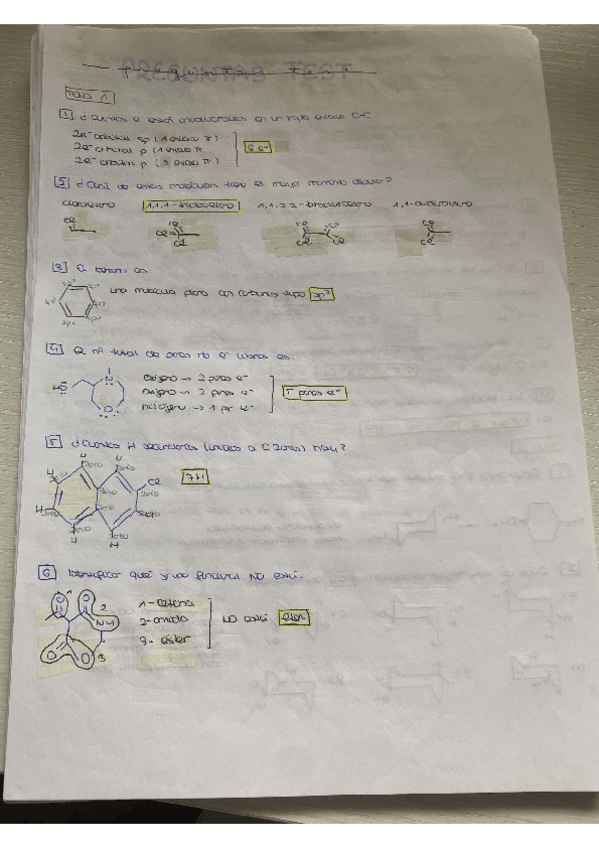 PREGUNTAS TEST
TEMA 1
1 ¿Cuántos e⁻ están involucrados en un triple enlace C-C
2e⁻ orbital sp (1 enlace π)
2e⁻ orbital p (1 enlace π
2e⁻ orbital p (2 enlace π)
6 e⁻
2 ¿Cuál de estas moléculas tiene el mayor momento dipolar?
cloroetano 1,1,1-tricloroetano 1,1,2,2- 1,1-
Cl Cl Cl Cl Cl Cl
3 El benceno es
una molécula plana con carbonos tipo sp²
4 El nº total de pares de e⁻ libres es:
HO N O
oxígeno → 2 pares e⁻
oxígeno → 2 pares e⁻
nitrógeno → 1 par e⁻
5 pares e⁻
5 ¿Cuántos H secundarios (unidos a C 2arios) hay?
H H H Cl H H H
7H
6 Identificar qué grupo funcional NO está.
1 2 3
1- cetona
2- amida
3- éster
NO está éter